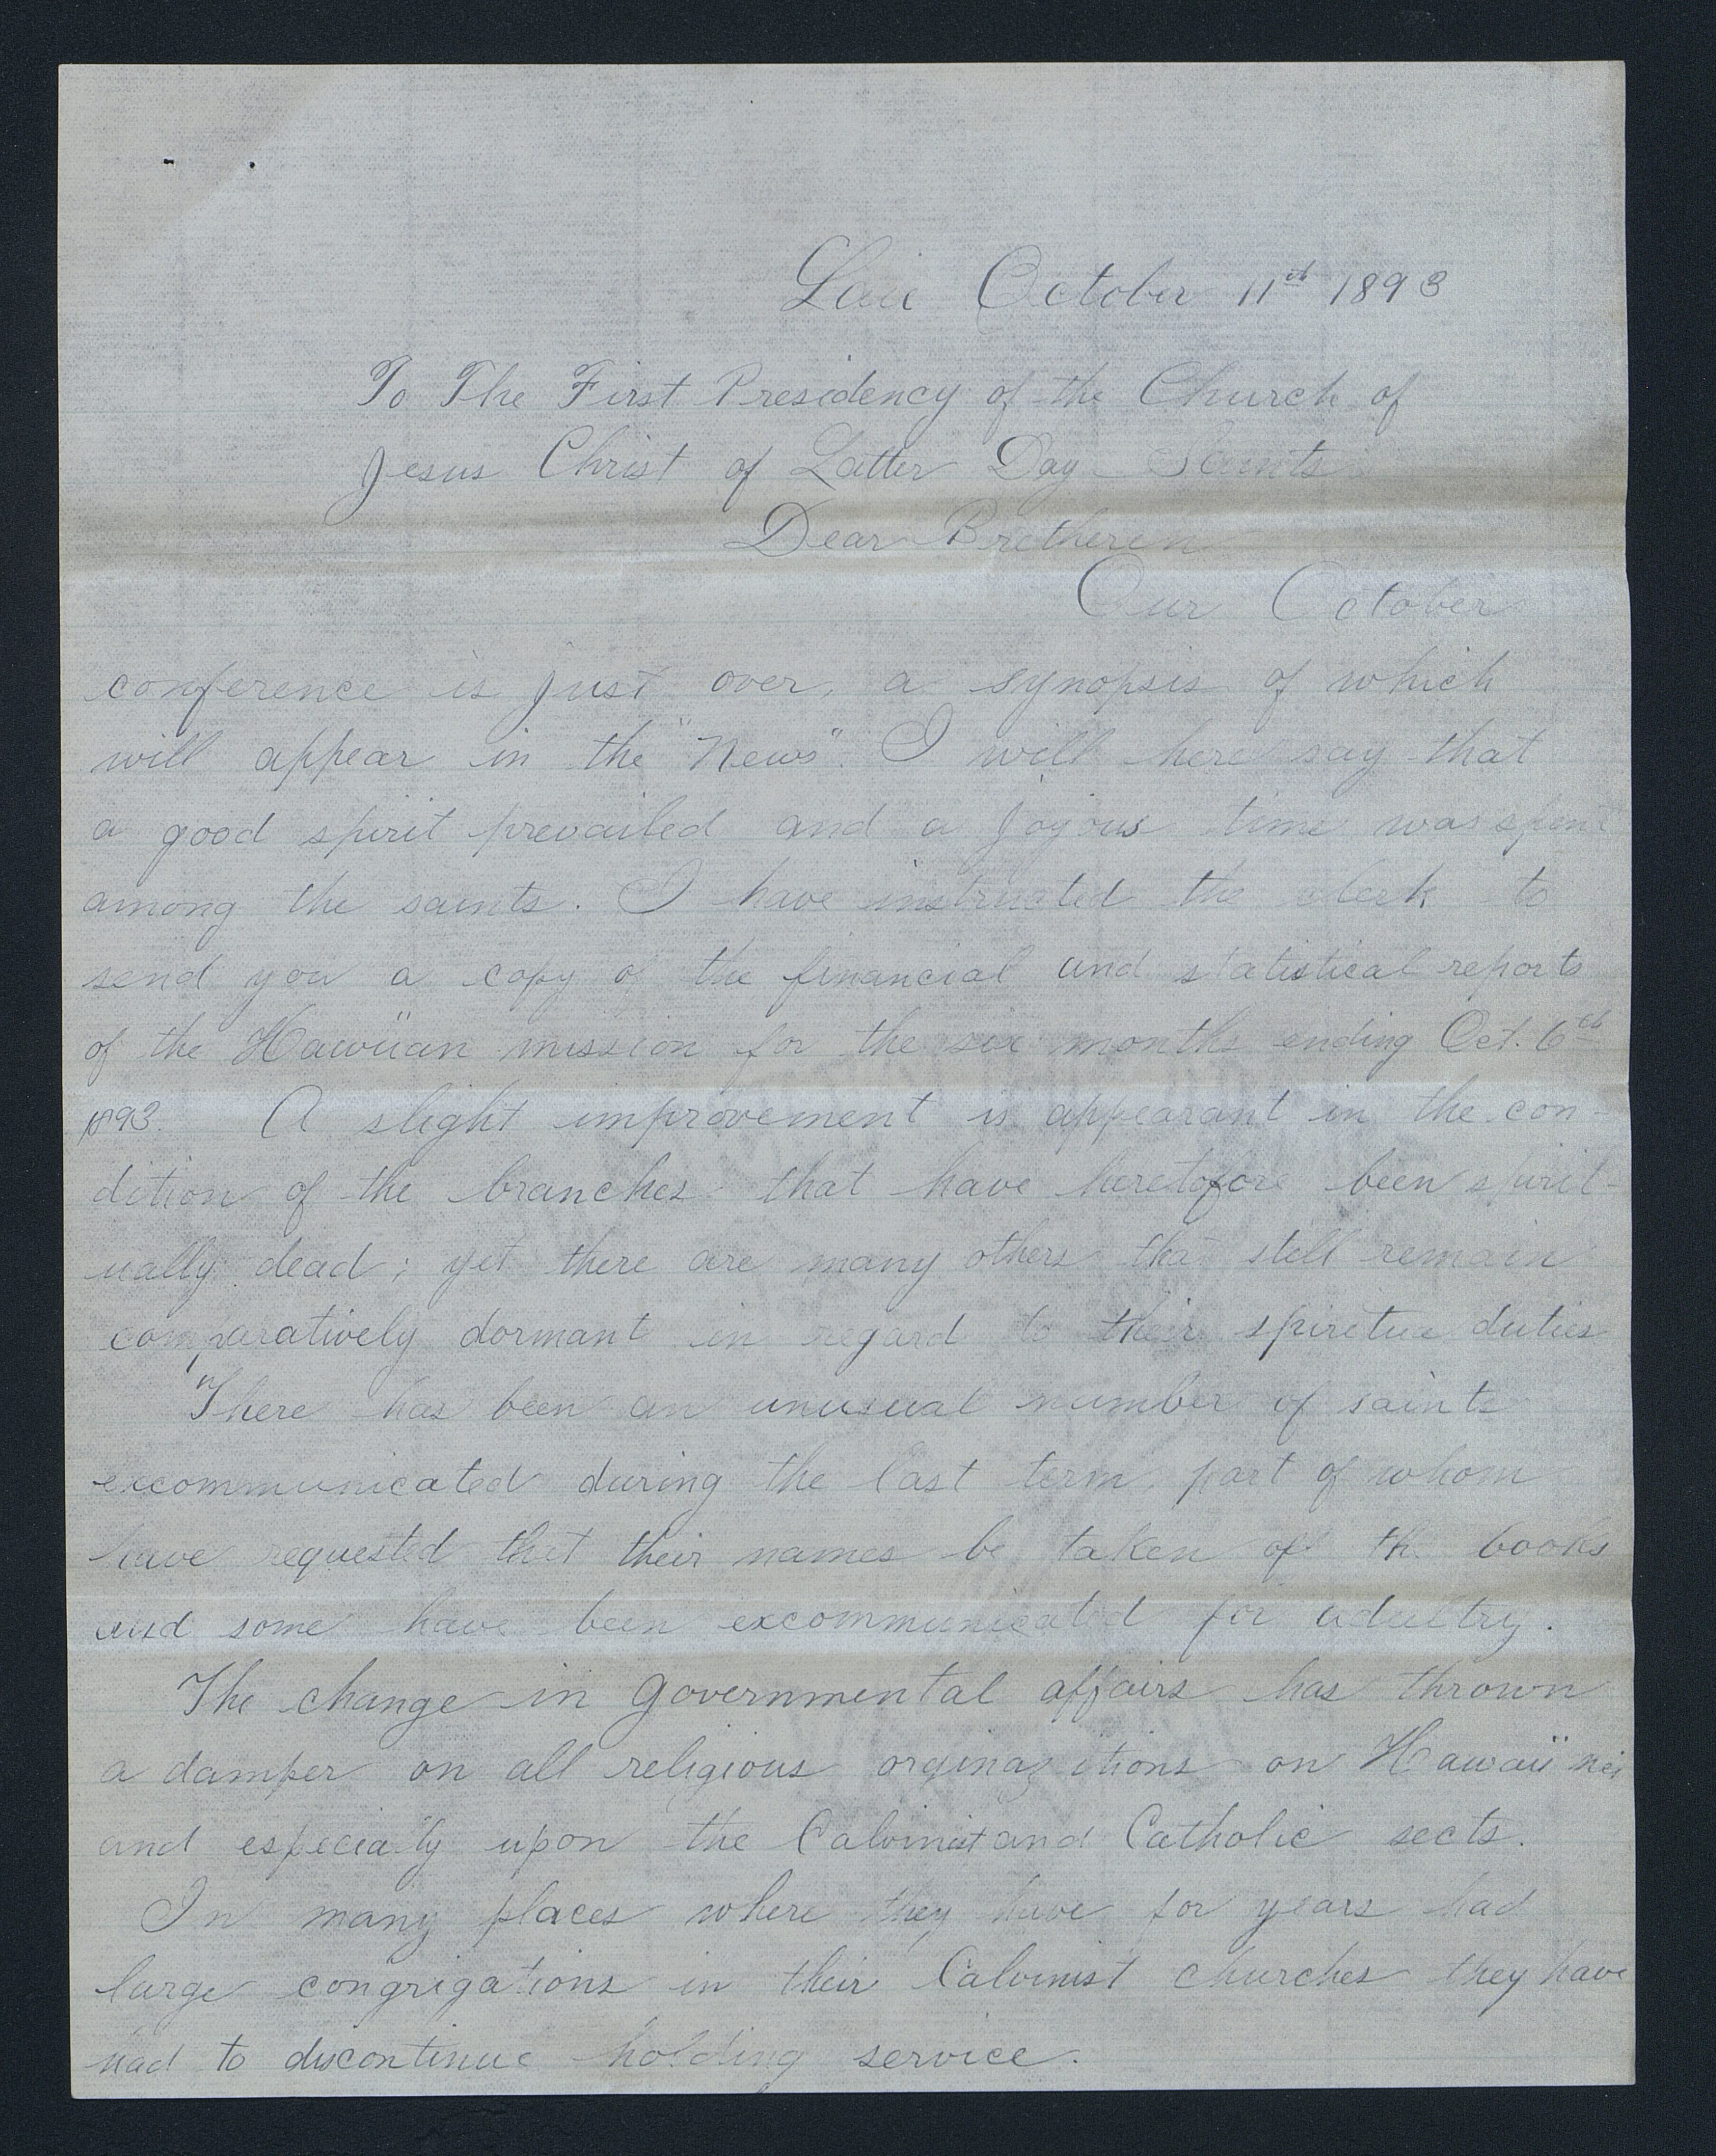 Laie October 11th 1893
To The First Presidency of the Church of
Jesus Christ of Latter Day Saints
Dear Bretheren
Our October
conference is just over, a synopsis of which
will appear in the "News". I will here say that
a good spirit prevailed and a joyous time was spent
among the saints. I have instructed the clerk to
send you a copy of the financial and statistical reports
of the Hawaiian mission for the six months ending Oct. 6th
1893. A slight improvement is appearant in the con-
dition of the branches that have heretofore been spirit-
ually dead; yet there are many others that still remain
comparatively dormant in regard to their duties
There has been an unusual number of saints
excommunicated during the last term, part of whom
have requested that their names be taken of the books
and some have been excommunicated for adultry.
The change in governmental affairs has thrown
a damper on all religious orginazitions on Hawaii nei
and especially upon the Calvinist and Catholic sects.
In many places where they have for years had
large congrigations in their Calvinist churches they have
had to discontinue holding service.